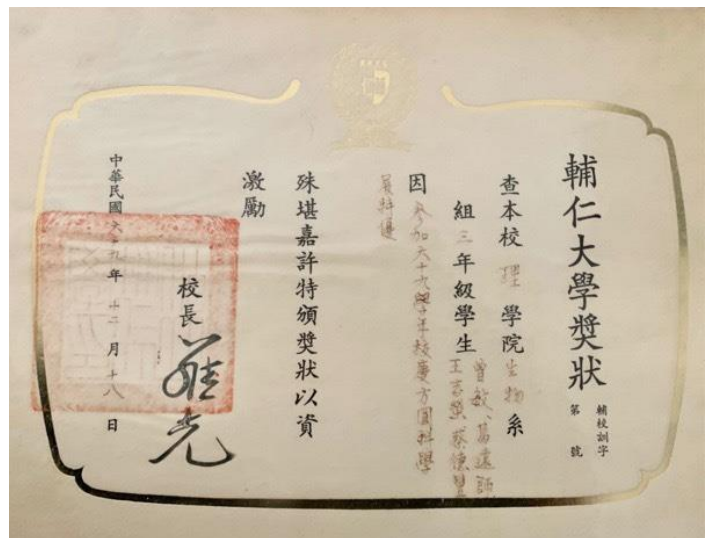 輔仁大學獎狀
輔校訓字
第 號
查本校 理 學院 生物 系
組 三 年級學生
曾敏、葛遠
王志 蔡德
因 參加六十九學年校慶方圓科學
展特優
殊堪嘉許特頒獎狀以資
激勵
校長 羅光
中華民國六十九年 十二 月 十八 日